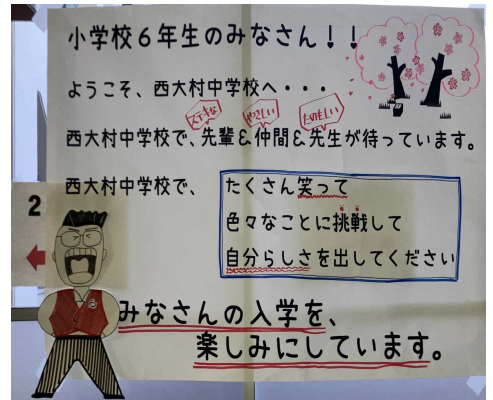 小学校6年生のみなさん!!
ようこそ、西大村中学校へ・・・
ステキな やさしい たのもしい
西大村中学校で、先輩&仲間&先生が待っています。
西大村中学校で、
たくさん笑って
色々なことに挑戦して
自分らしさを出してください
2
みなさんの入学を、
楽しみにしています。